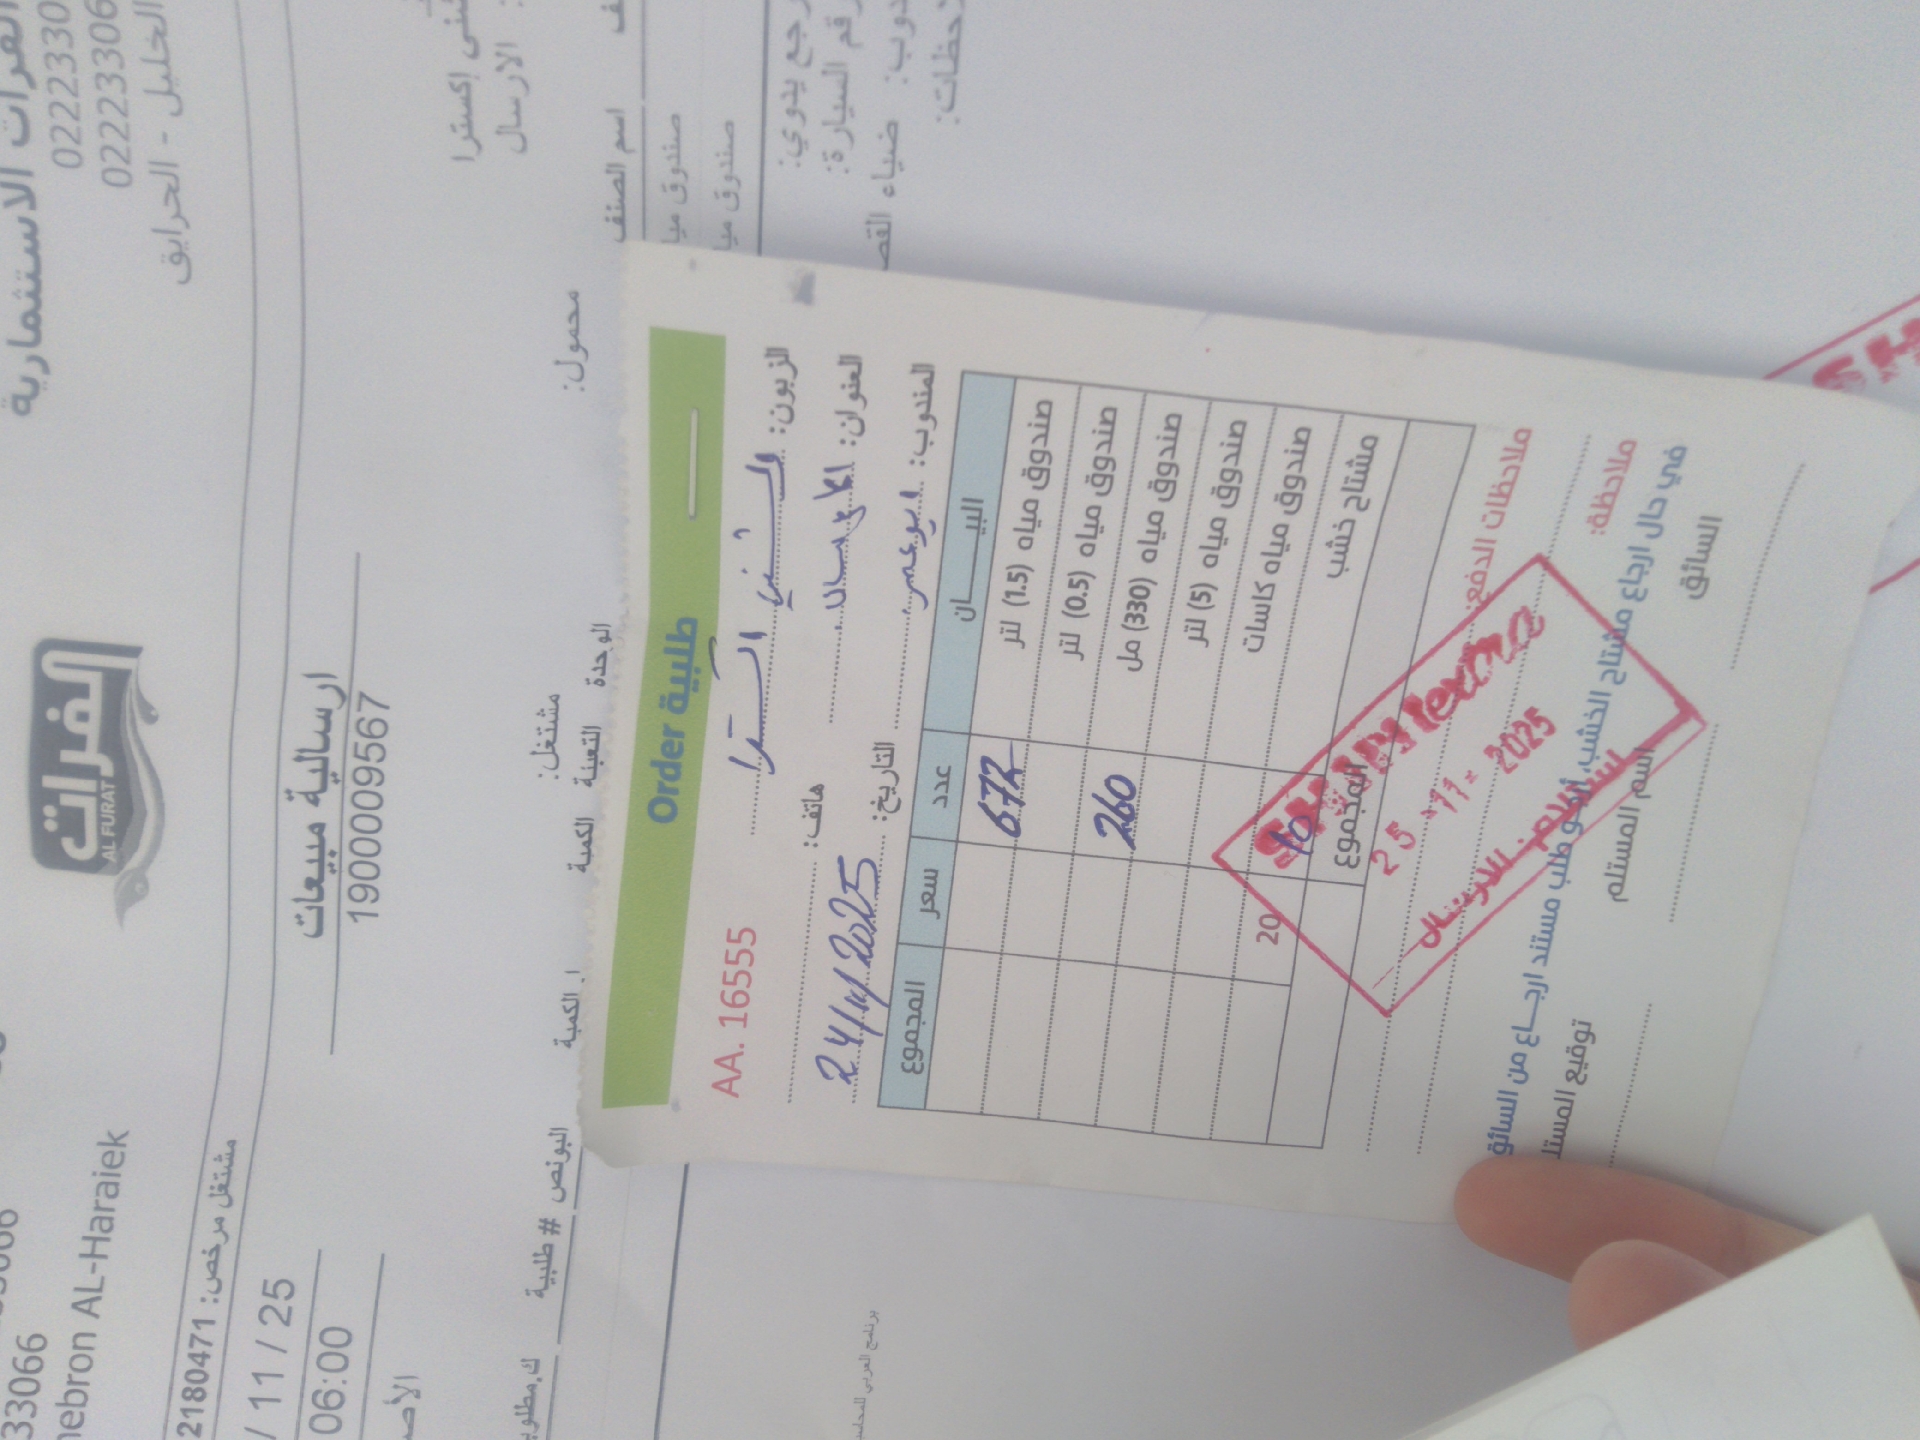 الفرات الاستثمارية
02223306
الخليل - الحرايق
33066
hebron AL-Haraiek
الفرات
AL FURAT
مشتغل مرخص: 2180471
/ 11 / 25
06:00
ارسالية مبيعات
1900009567
شني إكسترا
الارسال
محمول:
مشتغل:
اسم الصنف
الوحدة
التعبئة
الكمية
ا. الكمية
البونص
# طلبية
صندوق ميا
صندوق ميا
رجع يدوي:
رقم السيارة:
ضياء القص
Order طلبية
AA. 16555
الزبون: الشني اكسترا
العنوان: الارسال
هاتف:
المندوب: ابو عمر
التاريخ: 24/11/2025
البيــــان عدد سعر المجموع
صندوق مياه (1.5) لتر 672
صندوق مياه (0.5) لتر
صندوق مياه (330) مل 260
صندوق مياه (5) لتر
صندوق مياه كاسات
مشتاح خشب 10 20
المجموع
ملاحظات الدفع:
ملاحظة:
في حال ارجاع مشتاح الخشب، أرجو طلب مستند ارجــاع من السائق
السائق
اسم المستلم
توقيع المستل
25-11-2025
استلام - الارسال